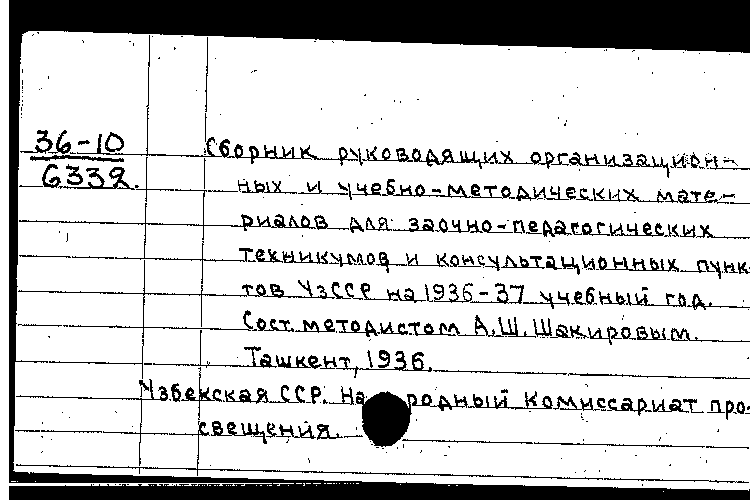 36-10
6332.
Сборник руководящих организацион-
ных и учебно-методических мате-
риалов для заочно-педагогических
техникумов и консультационных пунк-
тов УзССР на 1936-37 учебный год.
Сост. методистом А.Ш. Шакировым.
Ташкент, 1936.
Узбекская ССР. Народный Комиссариат про-
свещения.